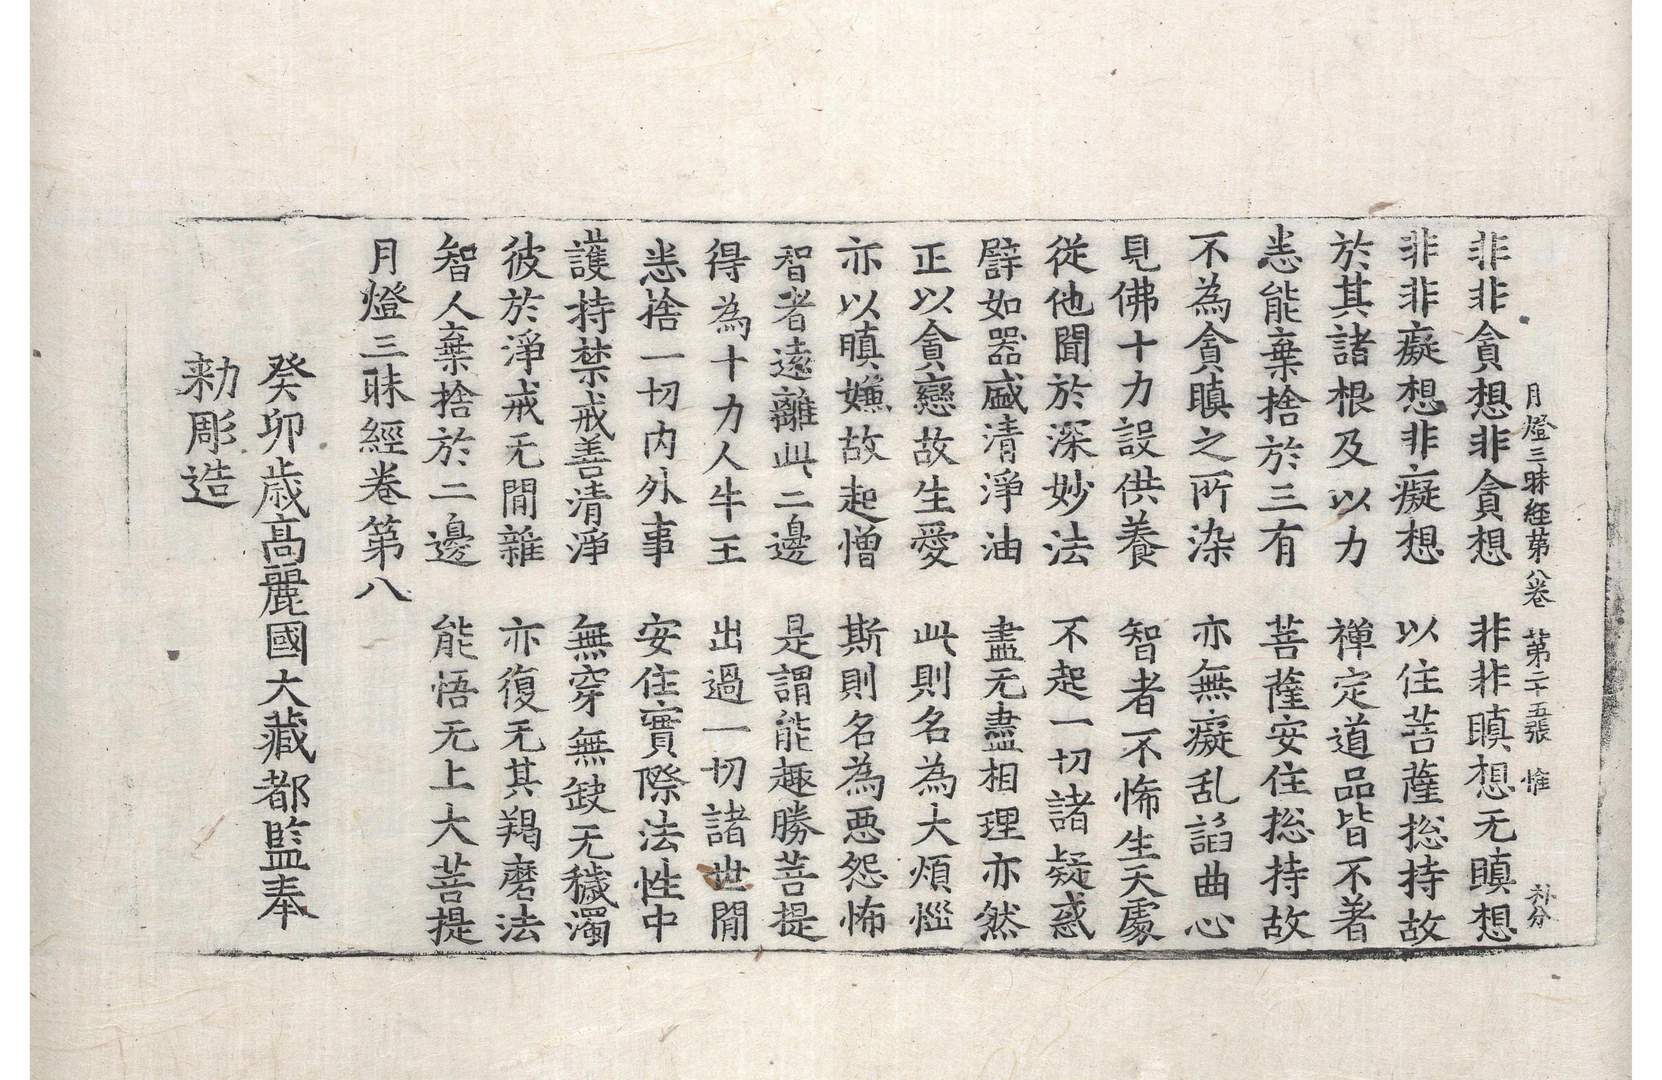 月燈三昧経苐八卷 第二十五張 惟 补分
非非貪想非貪想 非非瞋想无瞋想
非非癡想非癡想 以住菩薩捴持故
於其諸根及以力 禅定道品皆不著
悉能棄捨於三有 菩薩安住捴持故
不為貪瞋之所染 亦無癡乱諂曲心
見佛十力設供養 智者不怖生天處
從他聞於深妙法 不起一切諸疑惑
譬如器盛清淨油 盡无盡相理亦然
正以貪戀故生愛 此則名為大煩惱
亦以瞋嫌故起憎 斯則名為悪怨怖
智者遠離此二邊 是謂能趣勝菩提
得為十力人牛王 出過一切諸世間
悉捨一切内外事 安住實際法性中
護持禁戒善清淨 無穿無缺无穢濁
彼於淨戒无閒雜 亦復无其羯磨法
智人棄捨於二邊 能悟无上大菩提
月燈三昧經卷第八
癸卯歳髙麗國大藏都監奉
勑彫造